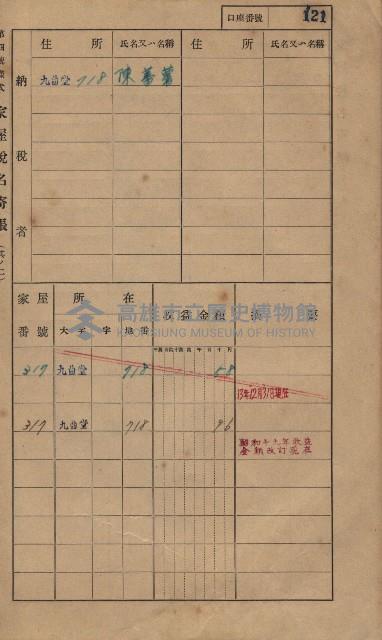 口座番號 121
第四號樣式 家屋稅名寄帳(其ノ二)
納稅者
住所 氏名又ハ名稱 住所 氏名又ハ名稱
九曲堂 718 陳蕃薯
家屋番號 所在 收益金額 摘要
大字 字 地番
高雄市立歷史博物館
KAOHSIUNG MUSEUM OF HISTORY
317 九曲堂 718 58
13年12月31日現在
317 九曲堂 718 96
昭和十九年收益
金額改訂現在